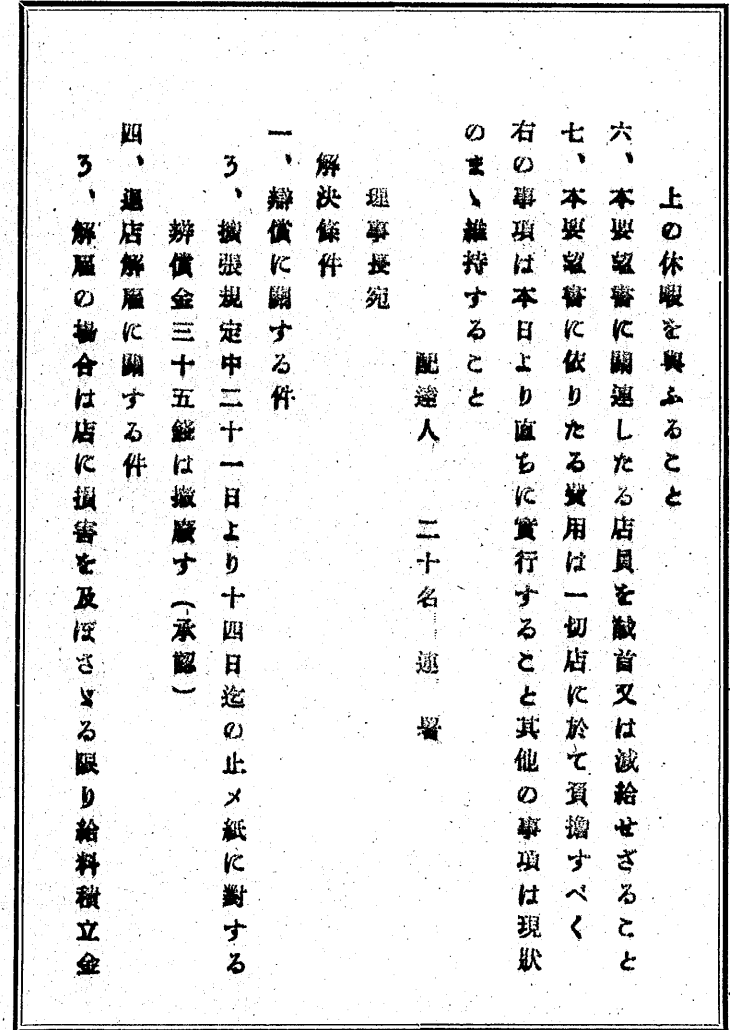 上の休暇を與ふること
六、本要望書に關連したる店員を馘首又は減給せざること
七、本要望書に依りたる費用は一切店に於て負擔すべく
右の事項は本日より直ちに實行すること其他の事項は現狀
のまゝ維持すること
配達人 二十名 連署
理事長宛
解決條件
一、辯償に關する件
ろ、擴張規定中二十一日より十四日迄の止メ紙に對する
辨償金三十五錢は撤廢す(承認)
四、退店解雇に關する件
ろ、解雇の場合は店に損害を及ぼさゞる限り給料積立金